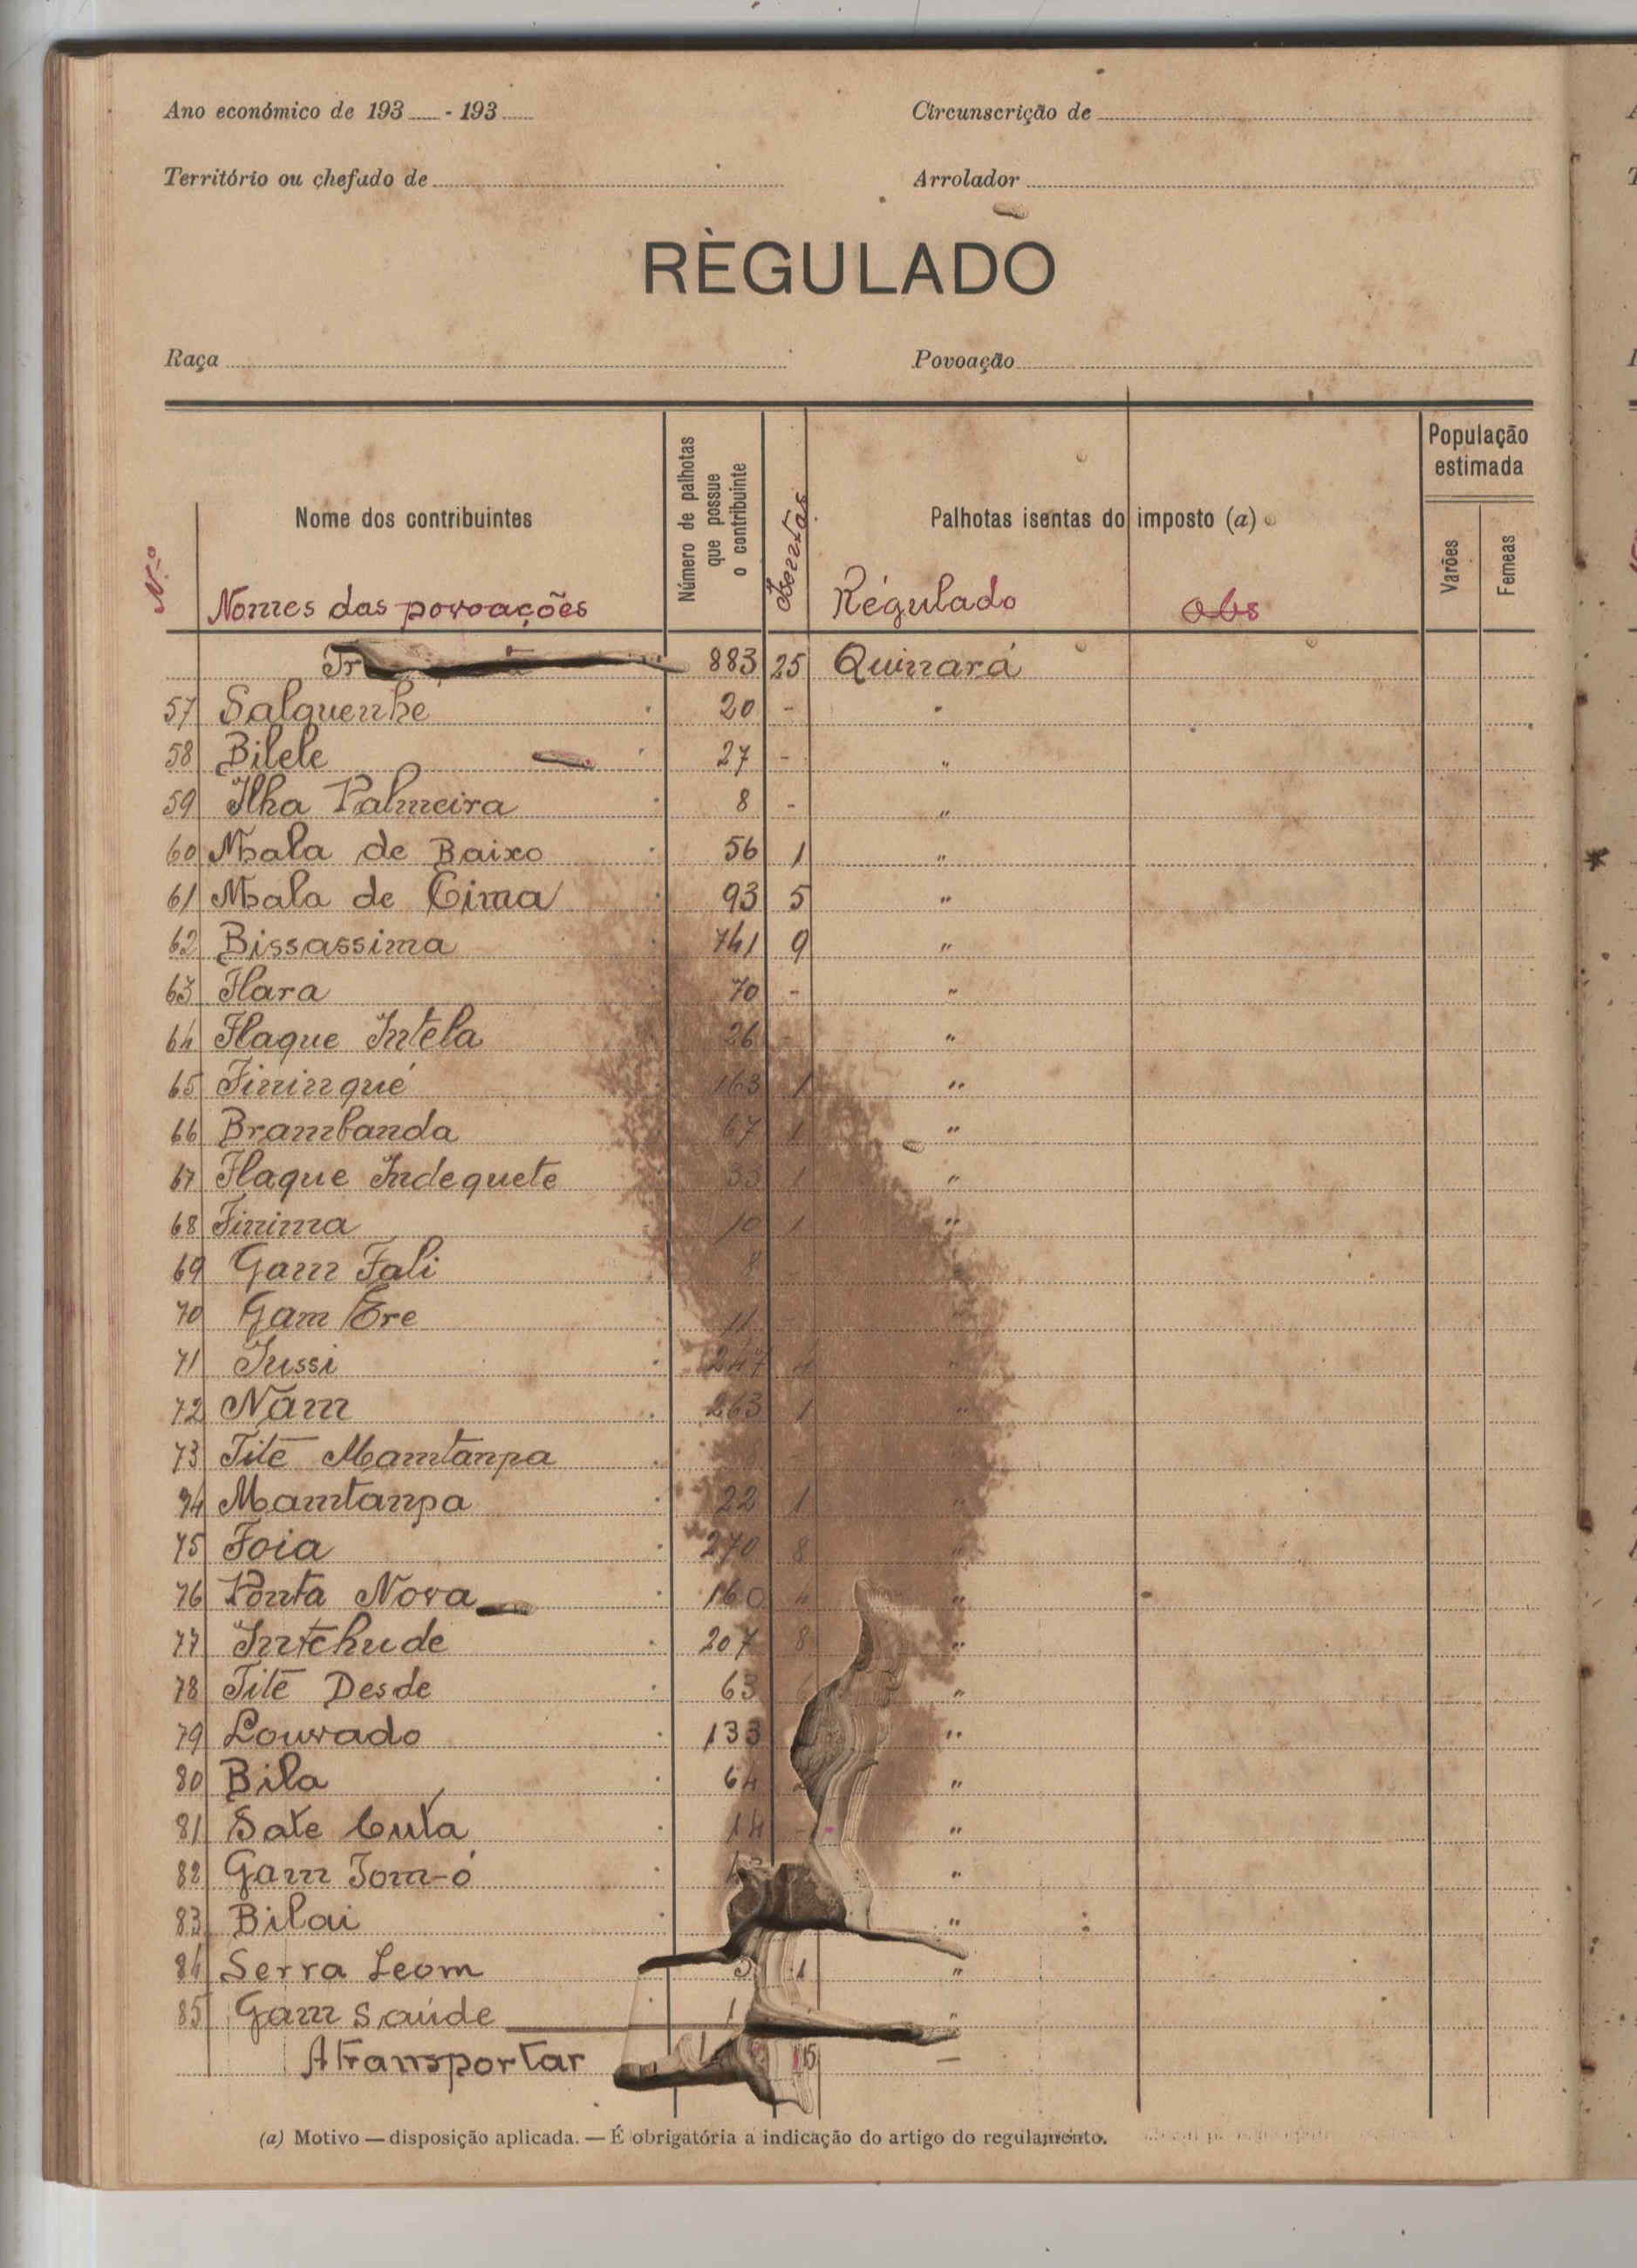 Ano económico de 193 - 193
Circunscrição de
Território ou chefado de
Arrolador
RÈGULADO
Raça
Povoação
Nome dos contribuintes
Número de palhotas que possue o contribuinte
Isentas
Palhotas isentas do imposto (a)
População estimada
Varões
Femeas
N.º
Nomes das povoações
Régulado
Obs
Tr 883 25 Quinará
57 Salquenhe 20 - "
58 Bilele 27 - "
59 Ilha Palmeira 8 - "
60 Nbala de Baixo 56 1 "
61 Nbala de Cima 93 5 "
62 Bissassima 741 9 "
63 Flara 70 - "
64 Flaque Intela 26 "
65 Fininqué 163 1 "
66 Brambanda 67 1 "
67 Flaque Indequete 33 1 "
68 Finima 10 1 "
69 Gam Fali 8
70 Gam Ere 11 "
71 Jussi 247 4 "
72 Nam 263 1 "
73 Tite Mamtanpa
74 Mamtanpa 22 1 "
75 Foia 270 8 "
76 Ponta Nova 160 4 "
77 Intchude 207 8 "
78 Tite Desde 63 6 "
79 Louvado 133 "
80 Bila 64 "
81 Sate Cuta 14 - "
82 Gam Tom-ó "
83 Bilai "
84 Serra Leom 1 "
85 Gam Saúde "
A transportar
(a) Motivo — disposição aplicada. — É obrigatória a indicação do artigo do regulamento.